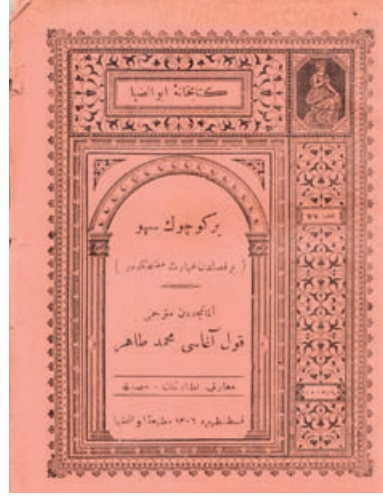 كتابخانهٔ ابوالضيا
بر كوچوك سهو
( بر فصلدن عبارت مضحكه در )
آلمانجه‌دن مترجمى
قول آغاسى محمد طاهر
معارف نظارتنك
قسطنطينيه ١٣٠٦ مطبعهٔ ابوالضيا